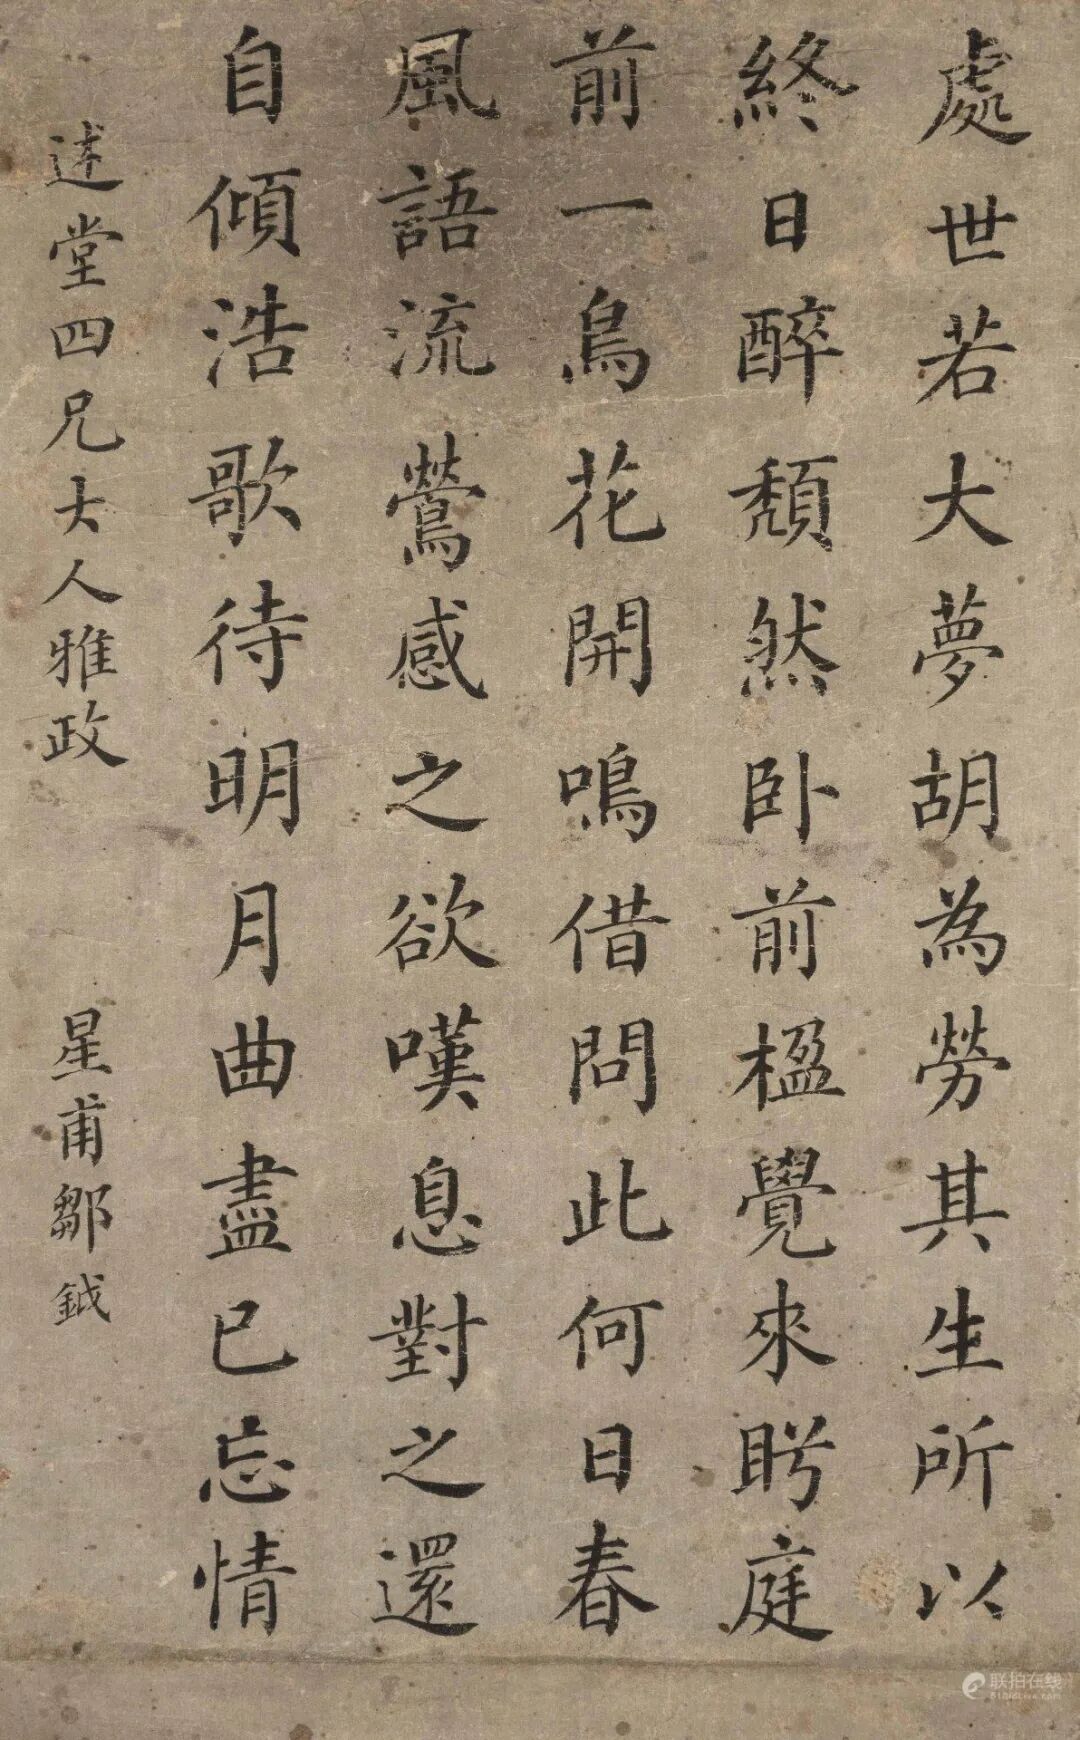 處世若大夢胡為勞其生所以
終日醉頹然卧前楹覺來眄庭
前一鳥花開鳴借問此何日春
風語流鶯感之欲嘆息對之還
自傾浩歌待明月曲盡已忘情
述堂四兄大人雅政
星甫鄒鉞
联拍在线